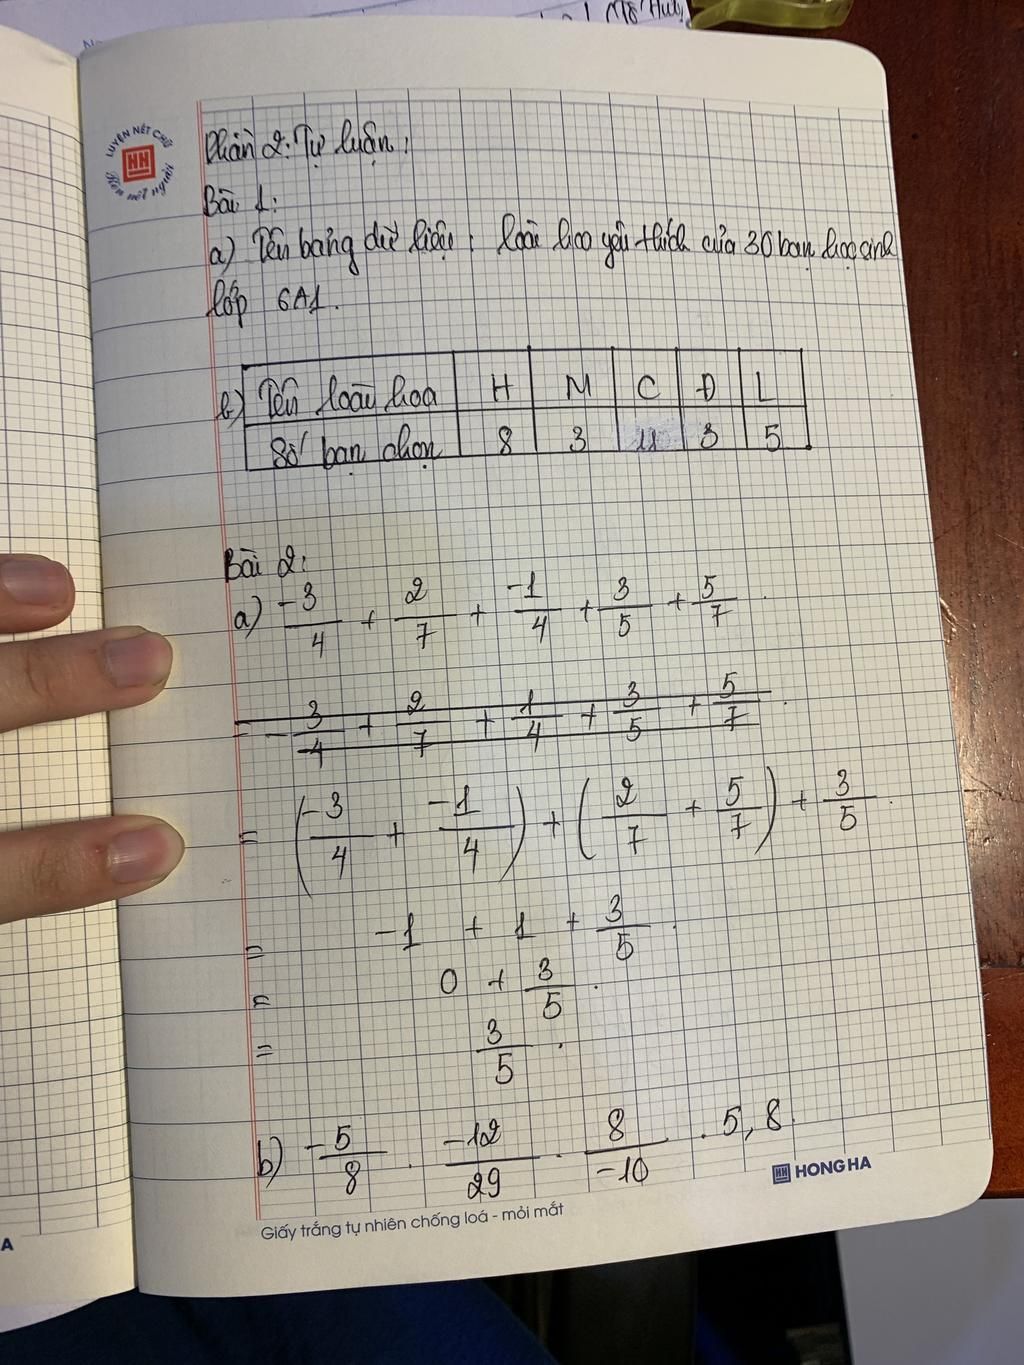 Mỹ Huy
LUYỆN NÉT CHỮ
HH
Rèn nết người
Phần 2: Tự luận:
Bài 1:
a) Tên bảng dữ liệu: loài hoa yêu thích của 30 bạn học sinh
lớp 6A1.
b) Tên loài hoa H M C Đ L
Số bạn chọn 8 3 11 3 5
Bài 2:
a) -3/4 + 2/7 + -1/4 + 3/5 + 5/7
= -3/4 + 2/7 + 1/4 + 3/5 + 5/7.
= (-3/4 + -1/4) + (2/7 + 5/7) + 3/5.
= -1 + 1 + 3/5.
= 0 + 3/5.
= 3/5.
b) -5/8 . -12/29 . 8/-10 . 5,8.
HH HONG HA
Giấy trắng tự nhiên chống loá - mỏi mắt
A